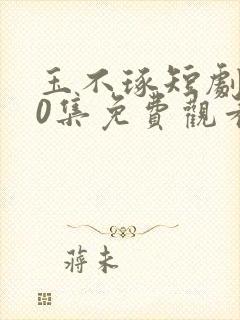 玉不琢短劇
0集免費觀看
蔣未